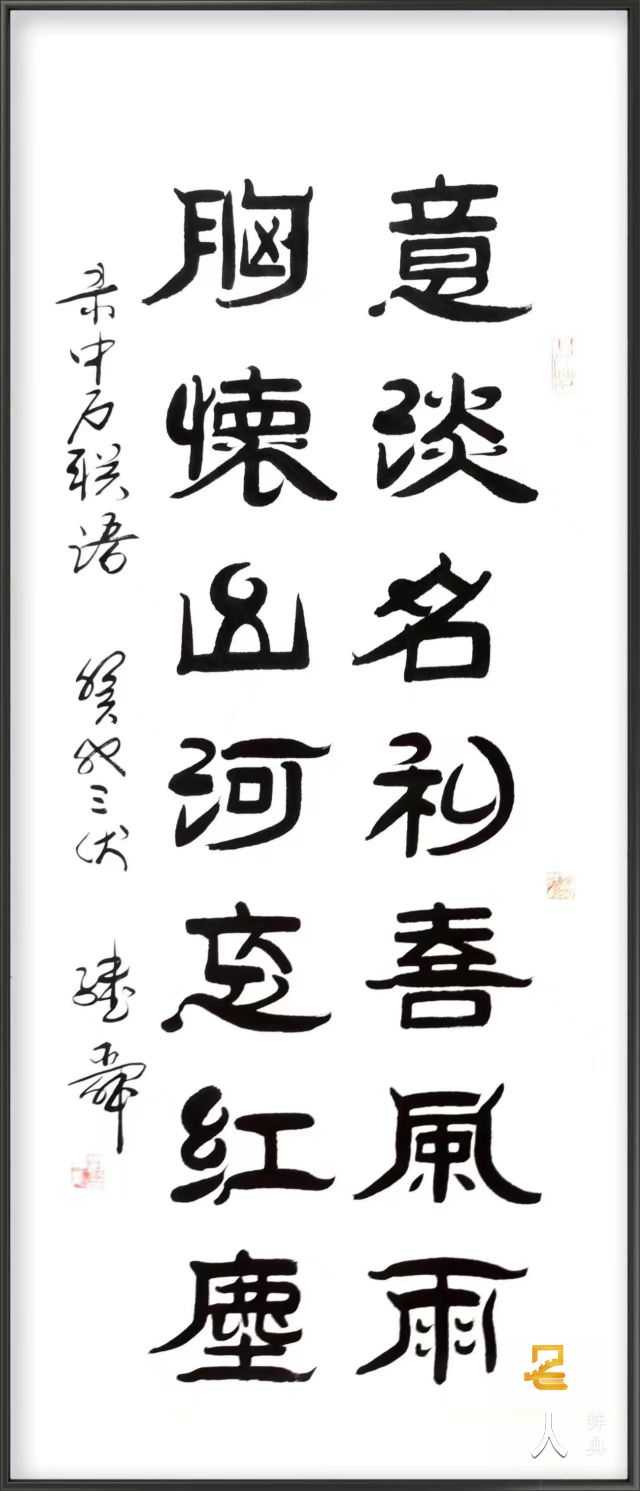 意淡名利喜風雨
胸懷山河忘紅塵
录中石联语 癸卯三伏 继舜
名人辞典